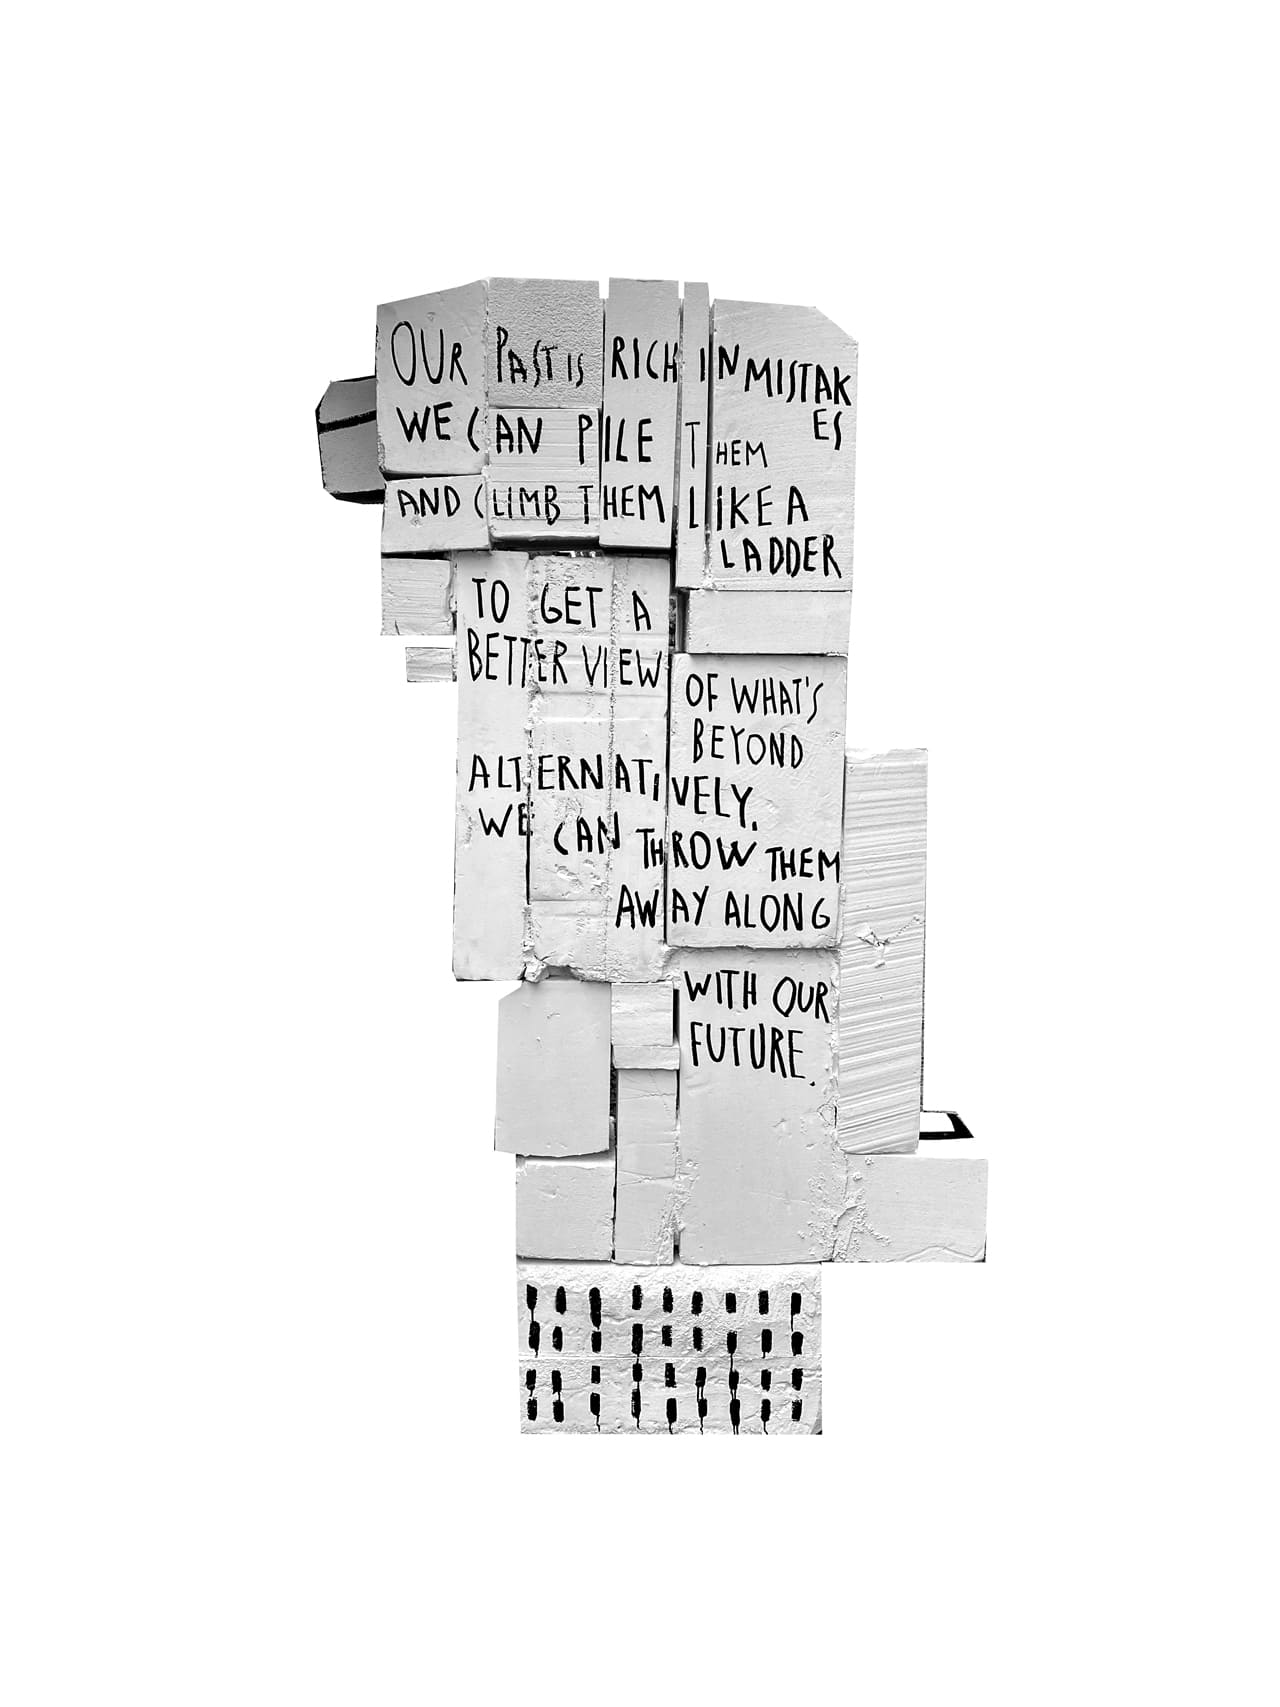 OUR PAST IS RICH IN MISTAK
ES
WE CAN PILE THEM
AND CLIMB THEM LIKE A
LADDER
TO GET A
BETTER VIEW
OF WHAT'S
BEYOND
ALTERNATIVELY.
WE CAN THROW THEM
AWAY ALONG
WITH OUR
FUTURE.